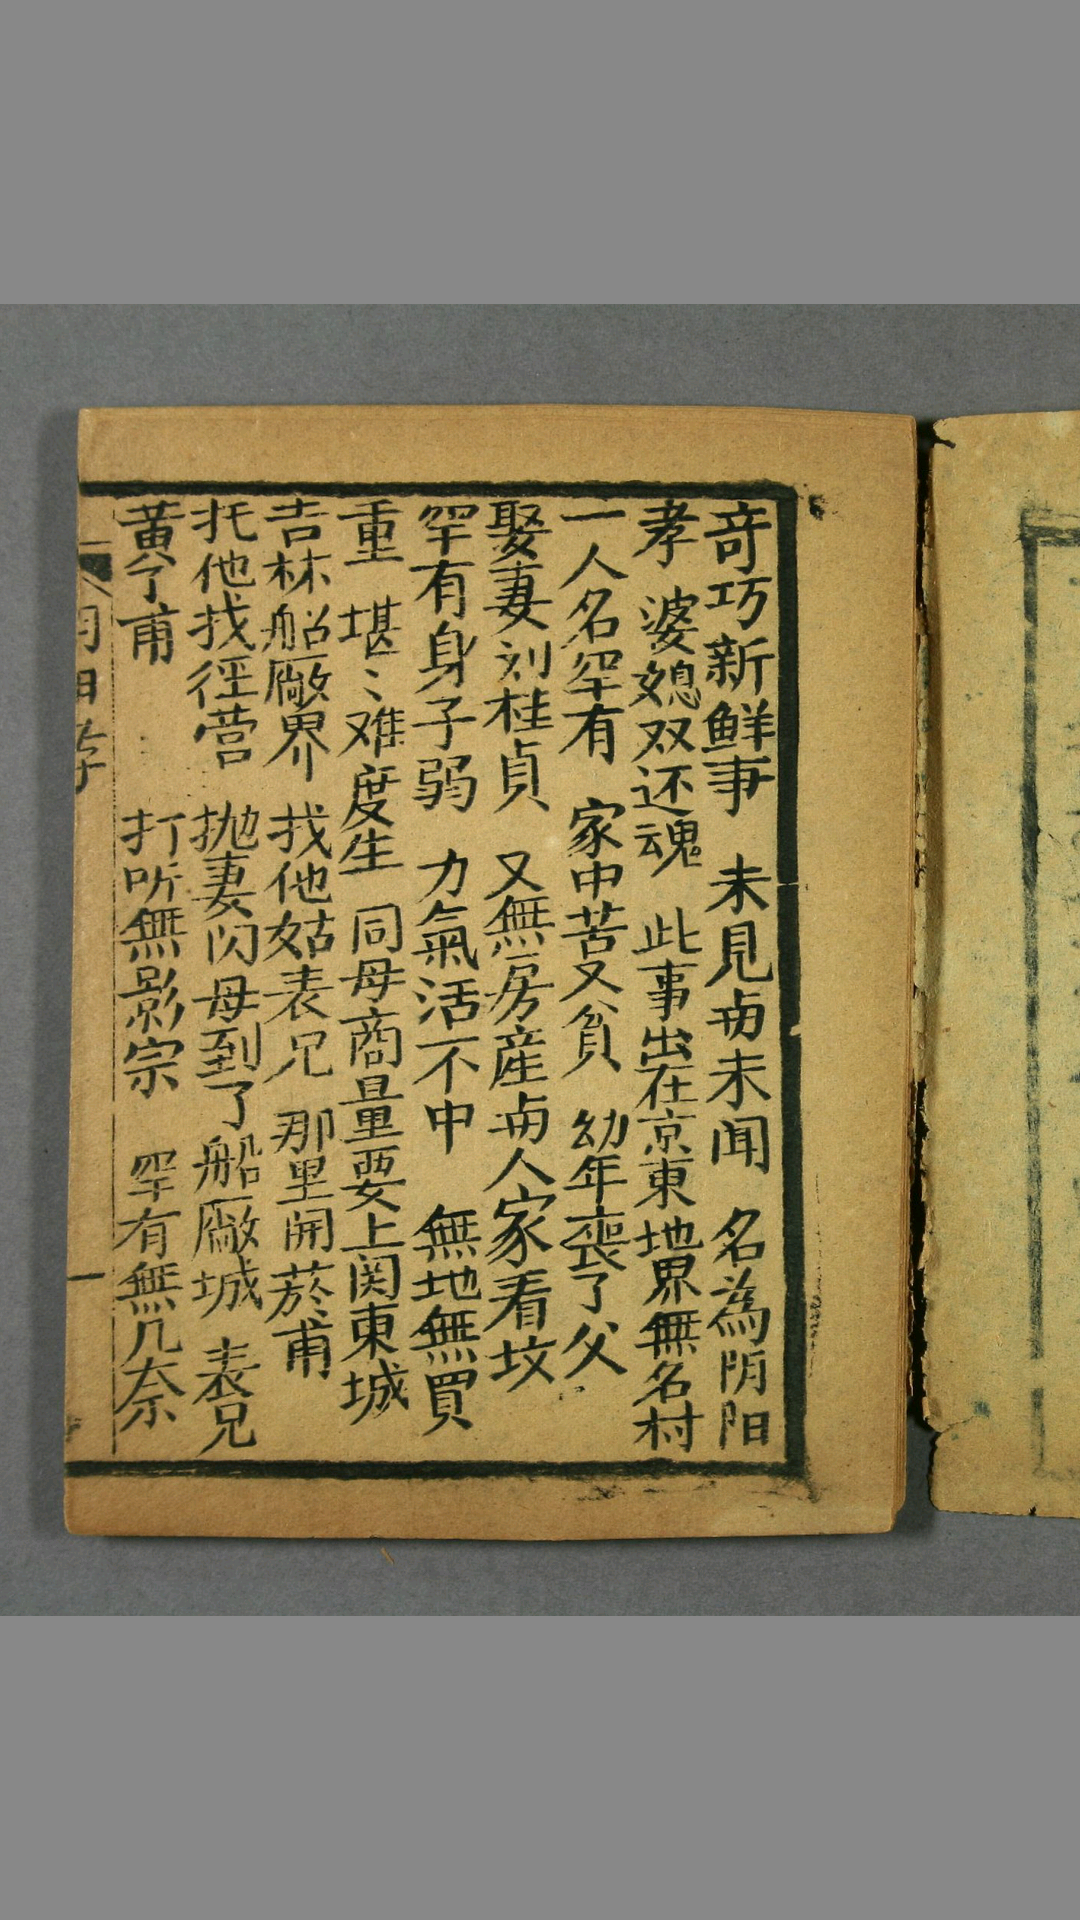 竒巧新鲜事　未見㪽未闻　名為阴阳
孝　婆媳双还魂　此事出在京東地界無名村
一人名罕有　家中苦又貧　幼年喪了父
娶妻刘桂貞　又無房産㪽人家看坟
罕有身子弱　力氣活不中　無地無買
重　堪〻难度生　同母商量要上関東城
吉林船廠界　找他姑表兄　那里開菸甫
托他找径营　抛妻闪母到了船廠城　表兄
黄了甫　打听無影宗　罕有無几奈
阴阳孝
一